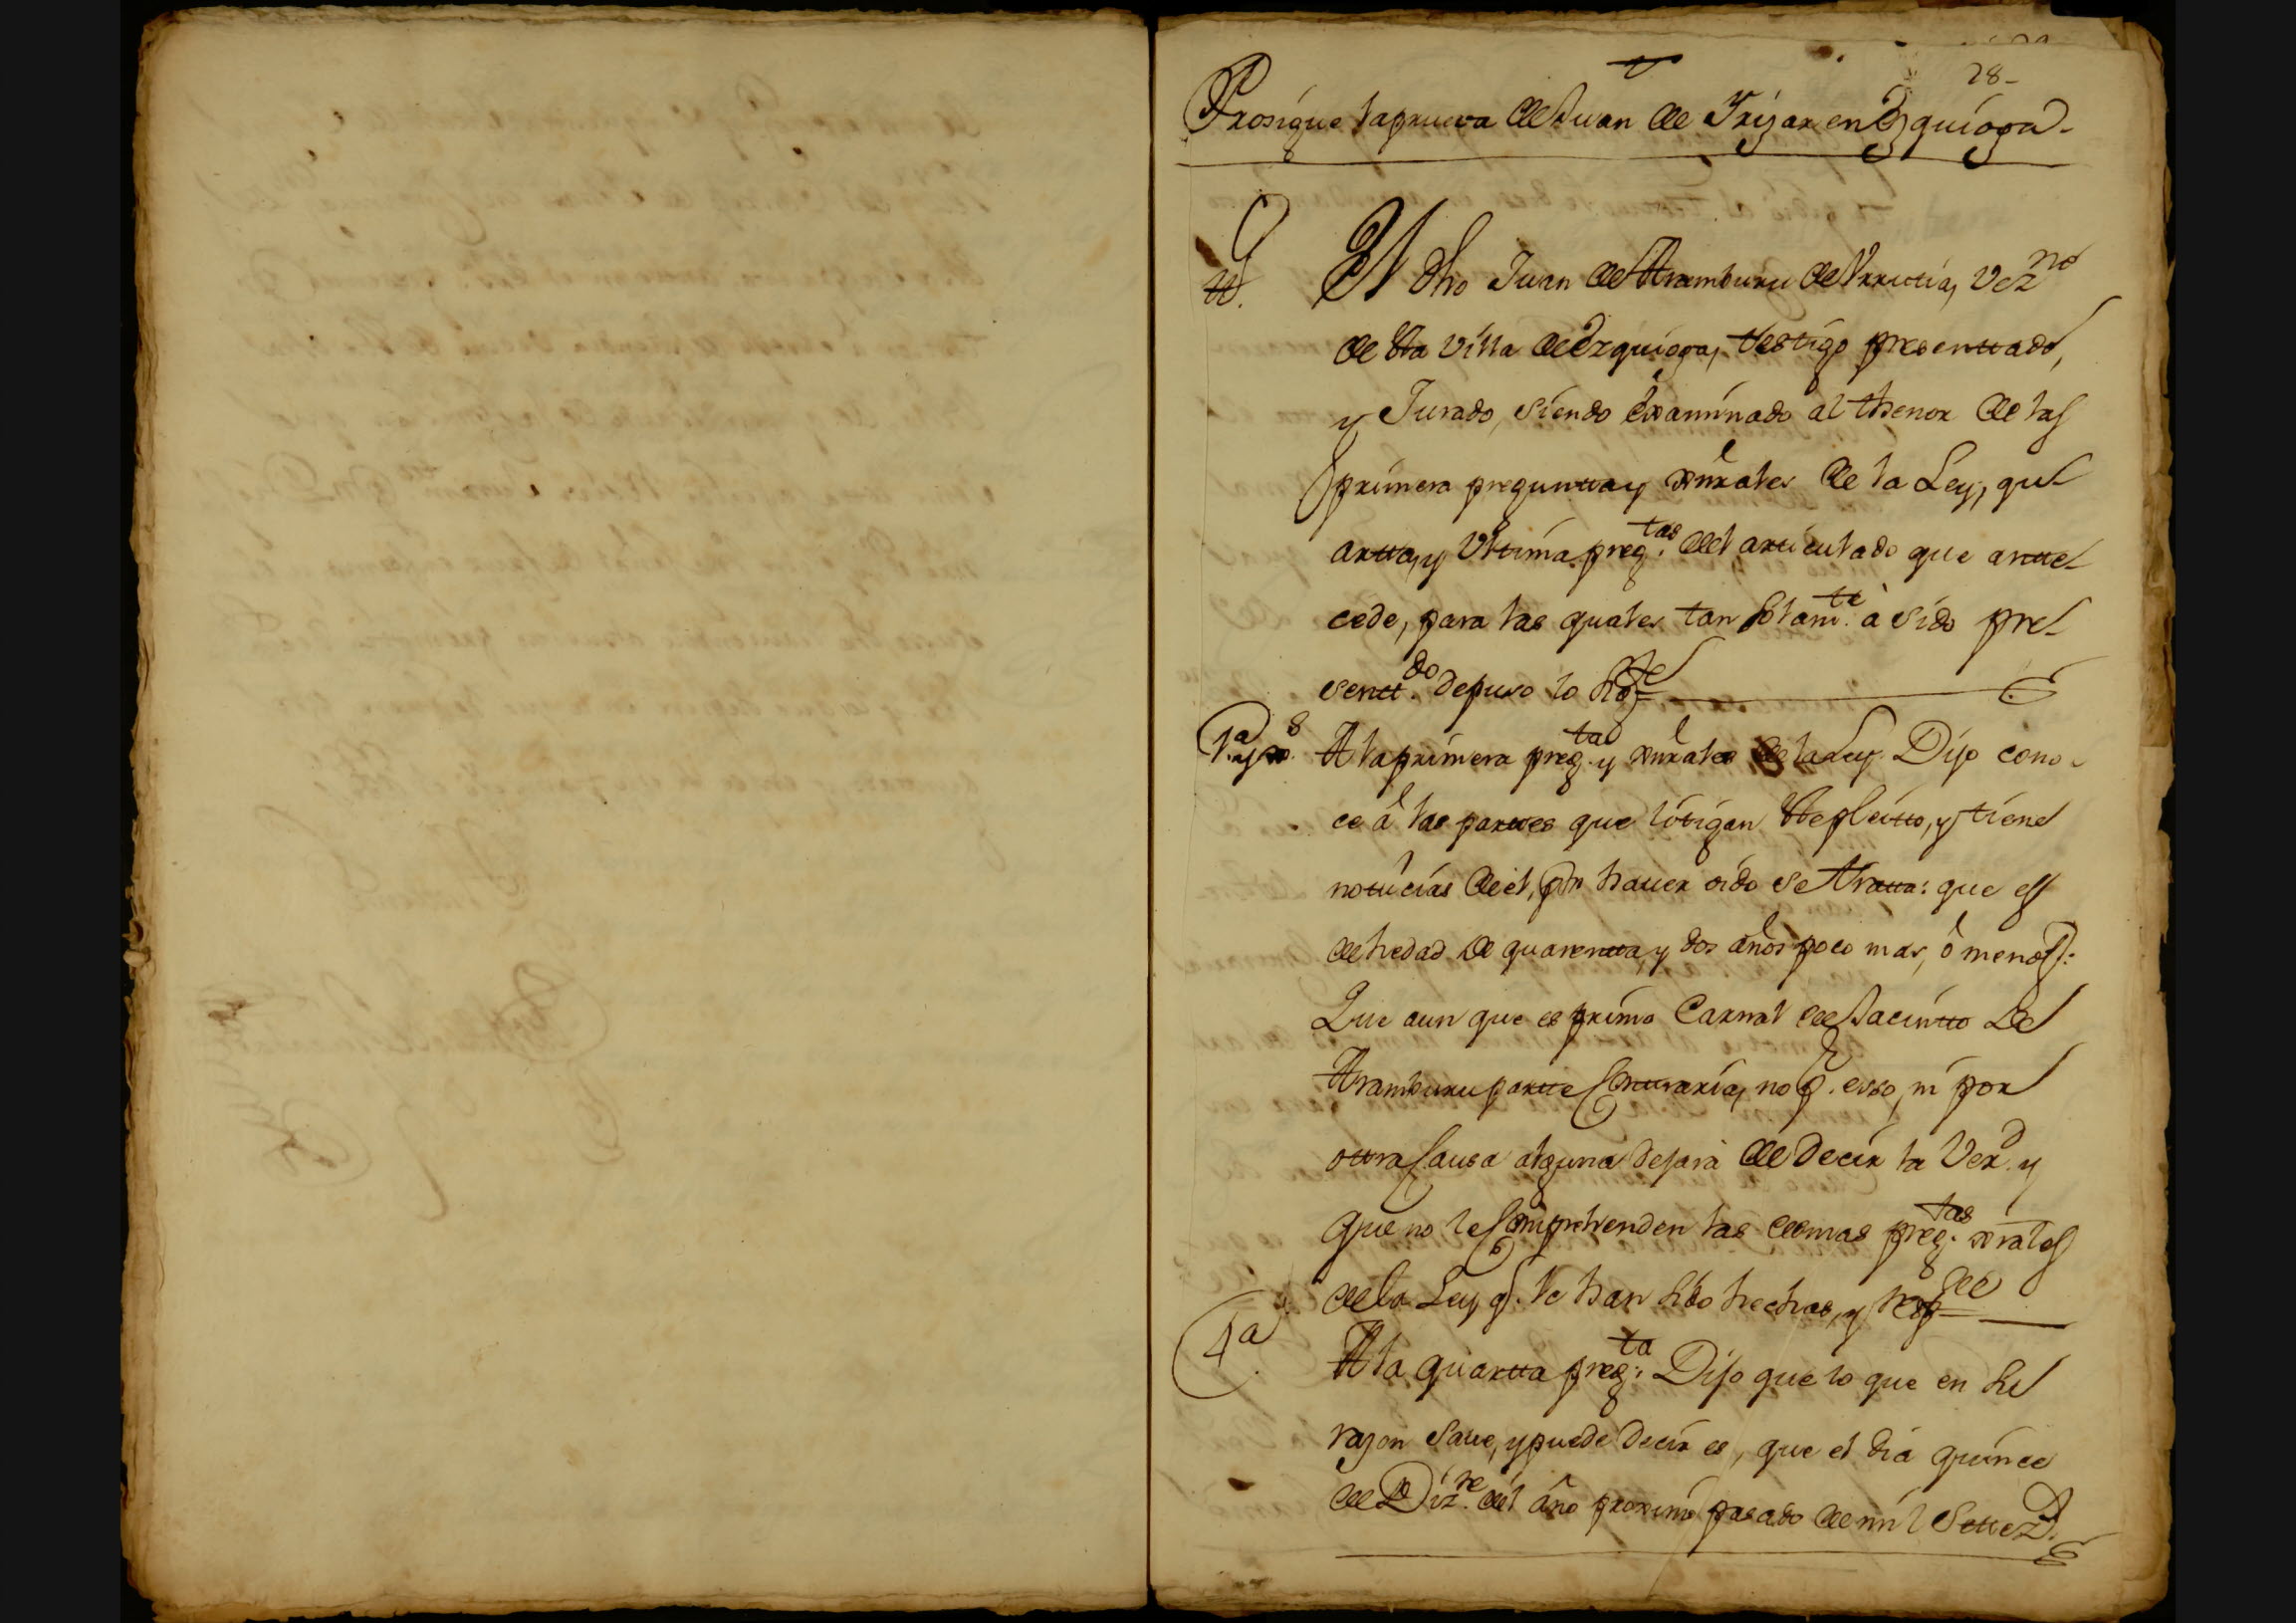 28-
Prosigue la prueva de Juan de Yrizar en Ezquioga-
El dho Juan de Aramburu de Vrrutia, Vezno
de Sta Villa de Ezquioga, testigo presenttado,
y Jurado, siendo examinado al thenor de las
primera pregunta y xnrales de la Ley, qu-
artta, y Vltima pregtas del articulado que antte-
cede, para las quales tan solamte à sido pre-
senttdo depuso lo sigte
1a y xs. A la primera pregta y xnrales de la Ley Dijo cono-
ce â las parttes que litigan Ste pleitto, y tiene
noticias de el, por hauer oido se tratta: que es
de hedad de quarentta, y dos años poco mas, ô menos:
Que aun que es primo Carnal de Jacintto de
Aramburu partte Contraria, no pr. esso, ni por
ottra Causa alguna dejarà de decir la Verd. y
que no le Comprehenden las demas pregtas xrales
de la Ley q. le han sido hechas, y respde
4a A la quartta pregta: Dijo que lo que en su
razon Saue, y puede decir es, que el dia quince
de Dizre. del año proximo pasado de mil Settezs.